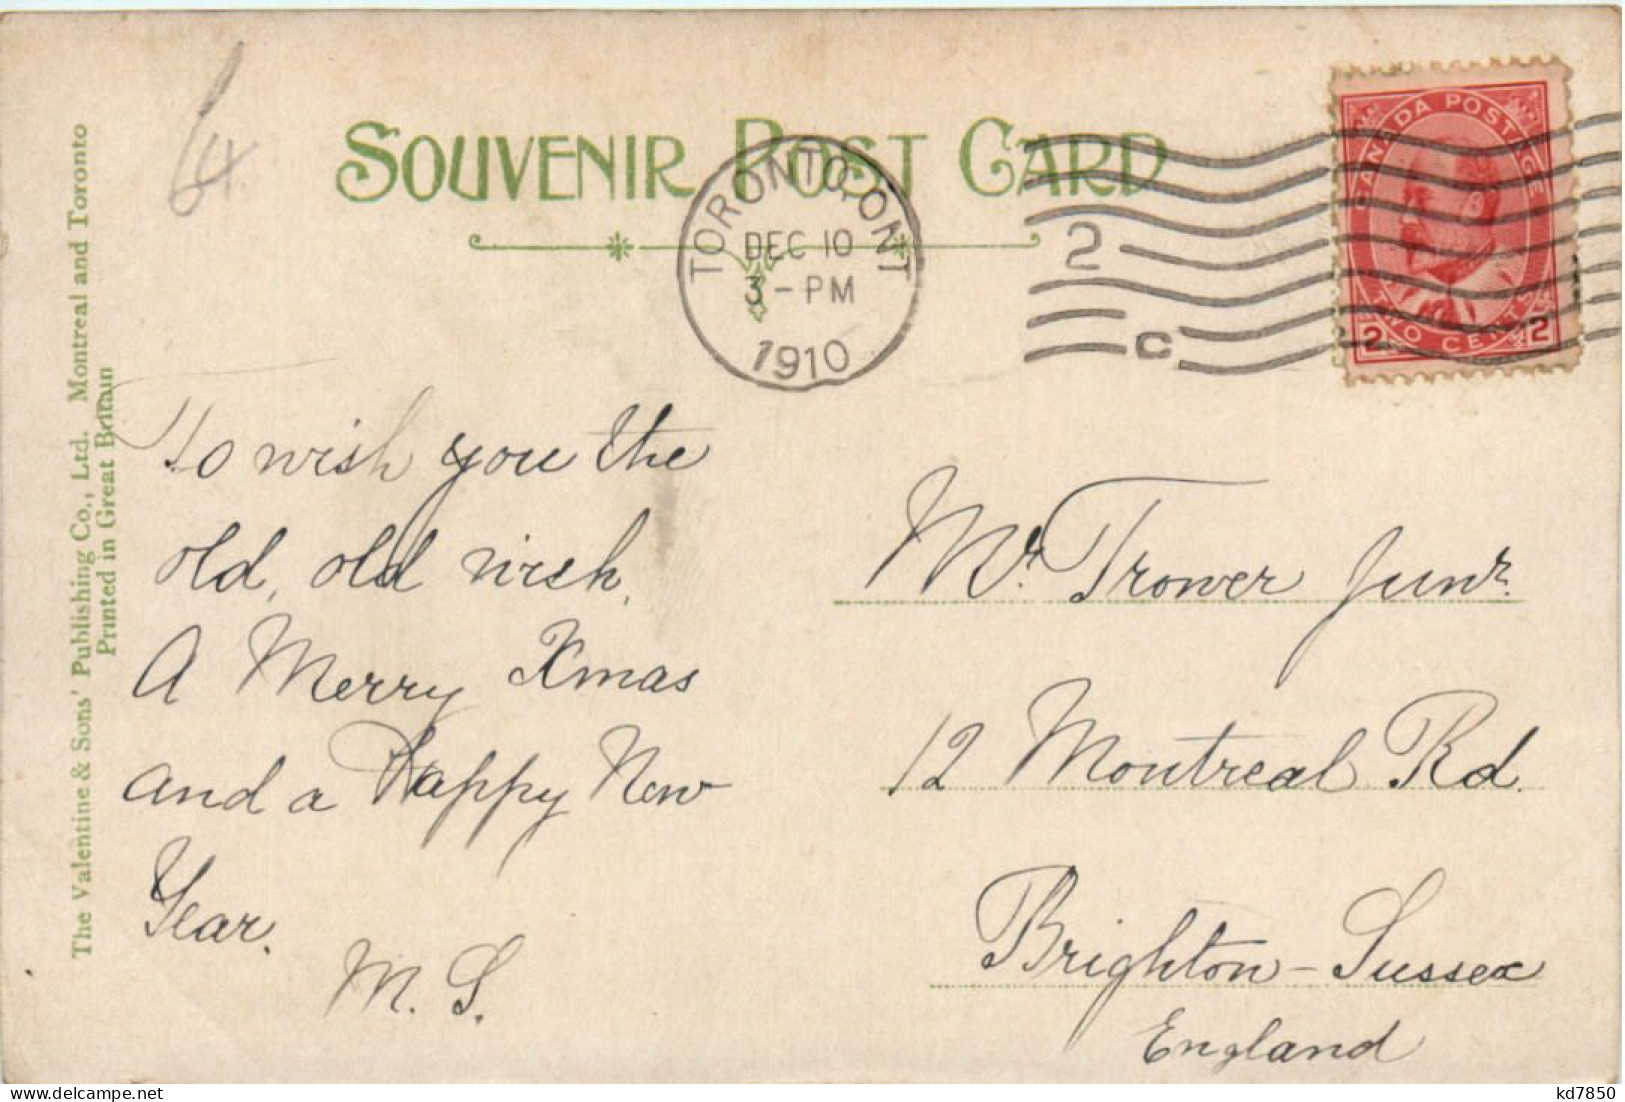 64
SOUVENIR POST CARD
TORONTO, ONT
DEC 10
3 - PM
1910
2
C
CANADA POSTAGE
2 TWO CENTS 2
The Valentine & Sons' Publishing Co., Ltd. Montreal and Toronto
Printed in Great Britain
To wish you the
old, old wish.
A Merry Xmas
and a Happy New
Year.
M. S.
Mr Trower Junr.
12 Montreal Rd.
Brighton - Sussex
England
kd7850